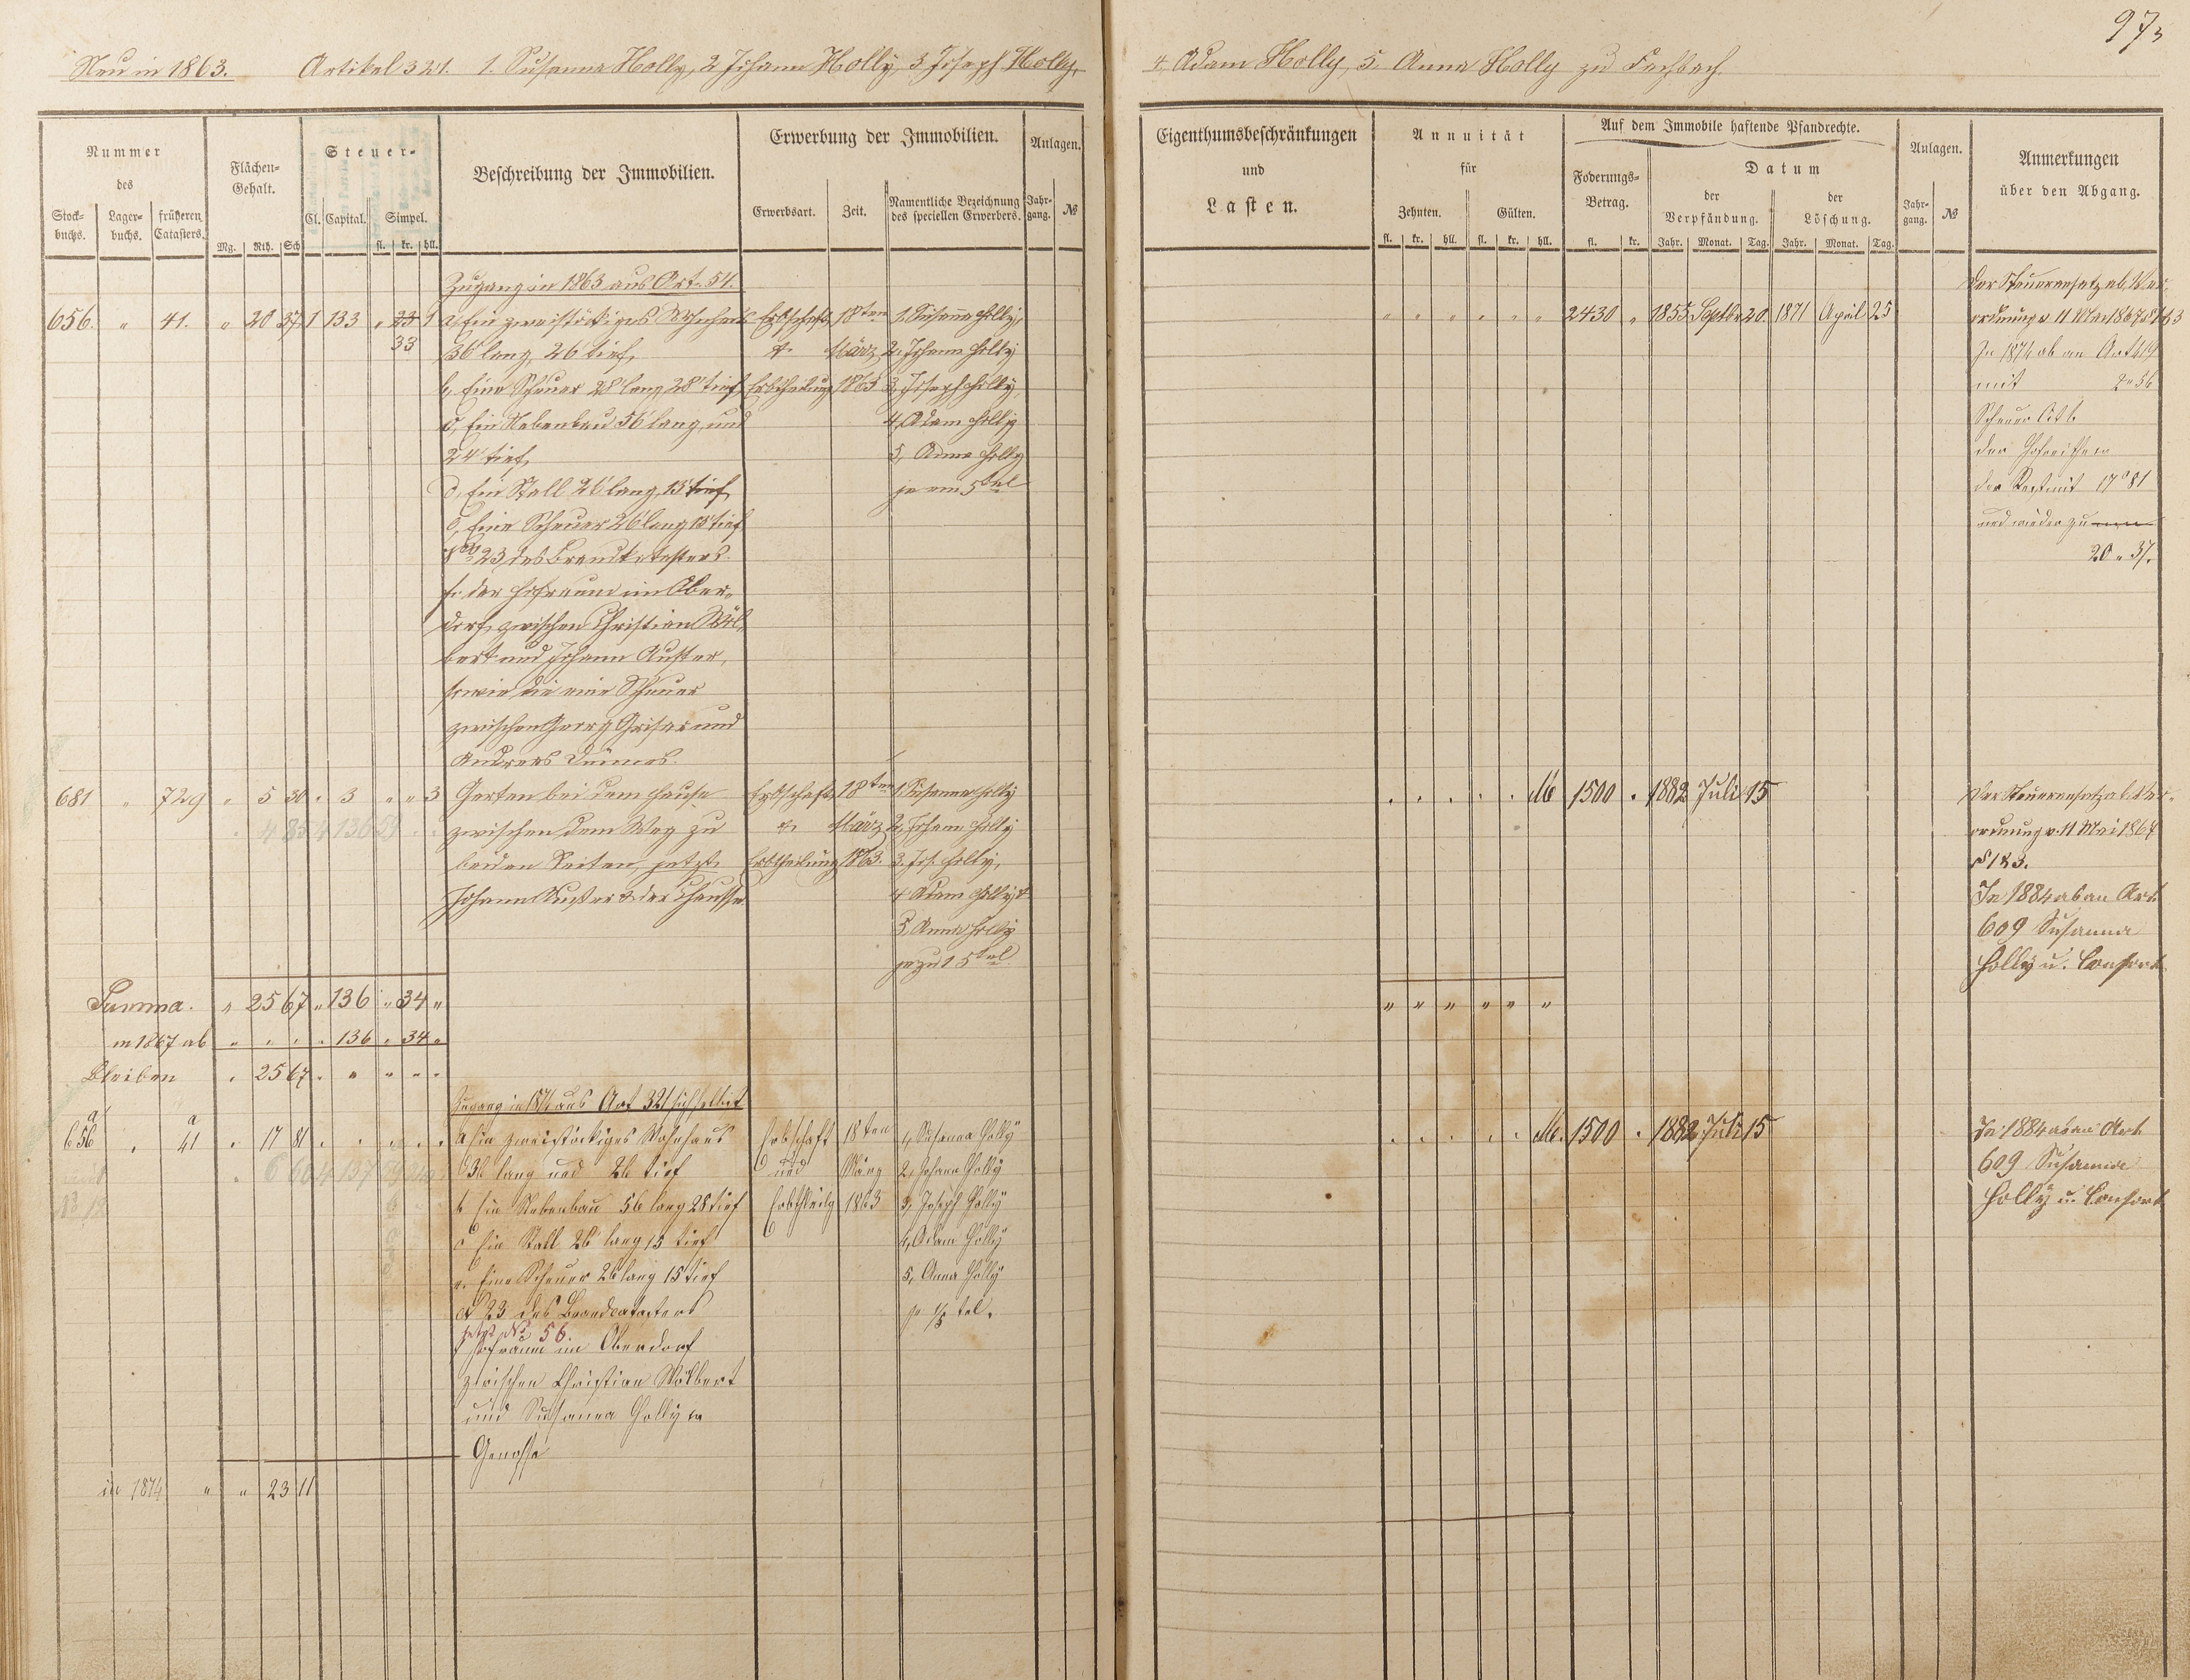 973
Neu in 1863. Artikel 321. 1. Susanna Holly, 2 Johann Holly, 3 Joseph Holly,
4. Adam Holly, 5. Anna Holly zu Fachbach.
Nummer
des
Stock-
buchs.
Lager-
buchs.
früheren
Catasters.
Flächen-
Gehalt.
Mg. Rth. Sch
Steuer-
Cl. Capital. Simpel.
fl. kr. hll.
Beschreibung der Immobilien.
Erwerbung der Immobilien.
Erwerbsart. Zeit.
Namentliche Bezeichnung
des speciellen Erwerbers.
Anlagen.
Jahr-
gang. №
Zugang in 1863 aus Art. 54.
656. " 41. " 20 37 1 133 " 23 1 a, Ein zweistöckiges Wohnhaus Erbschaft 18ten 1. Susanna Holly,
33 36' lang, 26' tief, & März 2, Johann Holly
b, Eine Scheuer 28' lang, 28' tief Erbtheilung 1863 3, Joseph Holly,
c, Ein Nebenbau 56' lang, und 4, Adam Holly
24' tief, 5, Anna Holly
d, Ein Stall 26' lang, 13' tief,
e, Eine Scheuer 26' lang 13' tief
№ 23 des Brandkatasters.
f. der Hofraum im Ober-
dorf zwischen Christian Wöl-
bert und Johann Auster,
sowie die eine Scheuer
zwischen Georg Griser und
Andreas
681 " 729 " 5 30 " 3 " " 3 Garten bei dem Hause Erbschaft 18ten 1. Susanna Holly
" 4 85 4 136 59 zwischen dem Weg zu & März 2, Johann Holly
beiden Seiten, jetzt Erbtheilung 1863. 3. Jos. Holly,
Johann Auster & der Chaussee 4 Adam Holly &
5, Anna Holly
je zu 1 5tel.
Summa. " 25 67 " 136 " 34 "
in 1867 ab " " " " 136 " 34 "
Bleiben " 25 67 " " " " "
Zugang in 1874 aus Art 321 sich selbst
656 a " 41 a " 17 81 " " " " " a Ein zweistöckiges Wohnhaus Erbschaft 18ten 1, Susanna Holly
36 lang und 26 tief und März 2, Johann Holly
b Ein Nebenbau 56 lang 28 tief Erbtheilg 1863 3, Joseph Holly
c Ein Stall 26 lang 15 tief 4, Adam Holly
e. Eine Scheuer 26 lang 15 tief 5, Anna Holly
№ 23 des Brandcatasters je 1/5 tel.
jetzt № 56.
f Hofraum im Oberdorf
zwischen Christian Wölbert
und Susanna Holly
Genosse
in 1874 " " 23 11
Eigenthumsbeschränkungen
und
Lasten.
Annuität
für
Zehnten. Gülten.
fl. kr. hll. fl. kr. hll.
Auf dem Immobile haftende Pfandrechte.
Foderungs-
Betrag.
fl. kr.
Datum
der
Verpfändung.
Jahr. Monat. Tag.
der
Löschung.
Jahr. Monat. Tag.
Anlagen.
Jahr-
gang. №
Anmerkungen
über den Abgang.
" " " " " " 2430 " 1855 Septbr 20. 1871 April 25
Der Steueransatz ab Ver-
ordnung v. 11 Mai 1867 § 183
In 1874 ab an Art 419
mit 2 " 56
Scheuer Lit b.
der Hofreithe
der Rest mit 17 " 81
und wieder zu
20 " 37.
" " " " " M 1500 " 1882 Juli 15
Der Steueransatz ab Ver-
ordnung v. 11 Mai 1867
§ 183.
In 1884 ab an Art.
609 Susanna
Holly u. Consort
" " " " " "
" " " " " M. 1500 " 1882 Juli 15
In 1884 ab an Art.
609 Susanna
Holly u. Consort